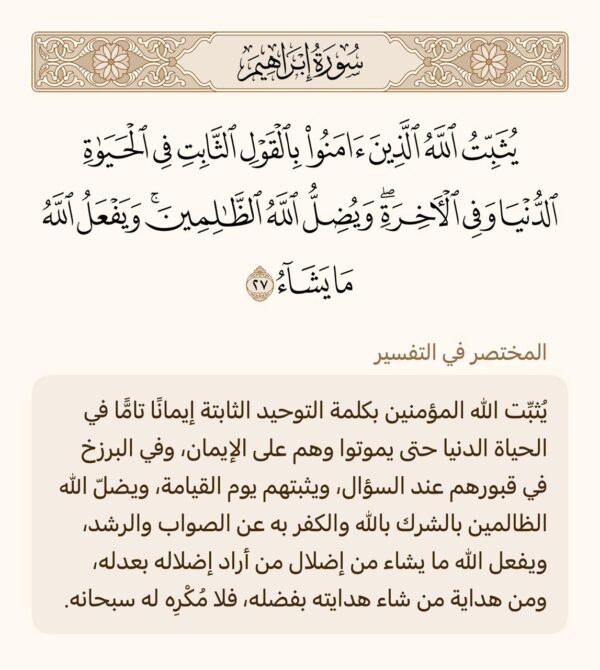 سُورَةُ إِبْرَاهِيمَ
يُثَبِّتُ ٱللَّهُ ٱلَّذِينَ ءَامَنُوا۟ بِٱلْقَوْلِ ٱلثَّابِتِ فِى ٱلْحَيَوٰةِ
ٱلدُّنْيَا وَفِى ٱلْـَٔاخِرَةِ ۖ وَيُضِلُّ ٱللَّهُ ٱلظَّـٰلِمِينَ ۚ وَيَفْعَلُ ٱللَّهُ
مَا يَشَآءُ ٢٧
المختصر في التفسير
يُثبِّت الله المؤمنين بكلمة التوحيد الثابتة إيمانًا تامًّا في
الحياة الدنيا حتى يموتوا وهم على الإيمان، وفي البرزخ
في قبورهم عند السؤال، ويثبتهم يوم القيامة، ويضلّ الله
الظالمين بالشرك بالله والكفر به عن الصواب والرشد،
ويفعل الله ما يشاء من إضلال من أراد إضلاله بعدله،
ومن هداية من شاء هدايته بفضله، فلا مُكْرِه له سبحانه.